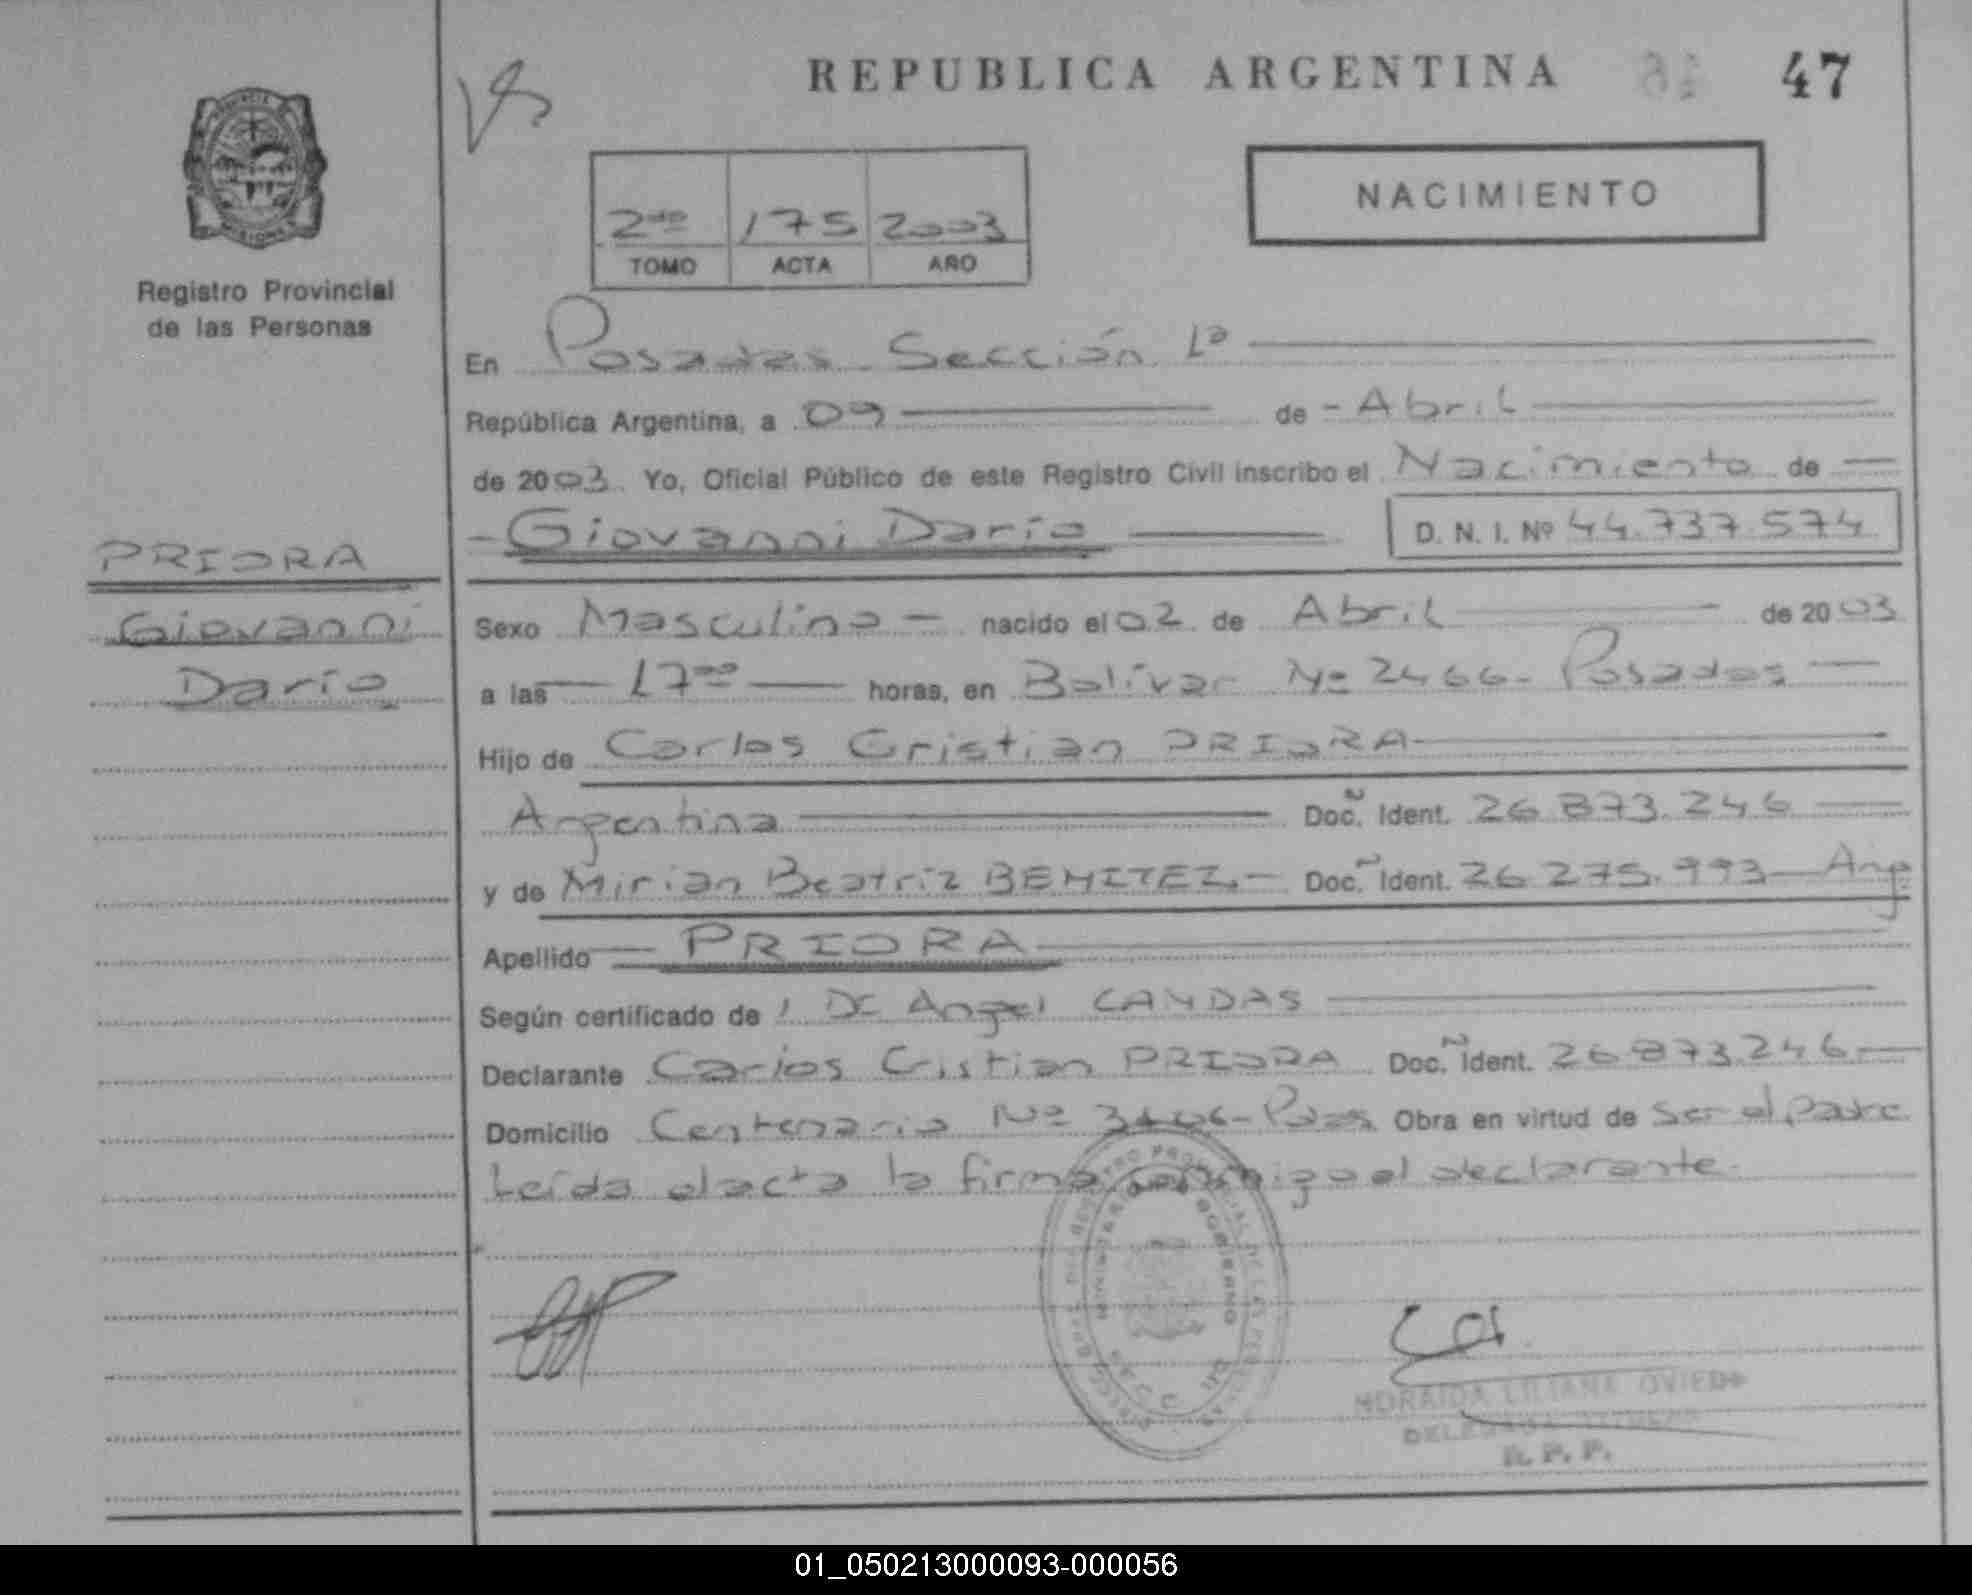 REPUBLICA ARGENTINA 47
NACIMIENTO
2do 175 2003
TOMO ACTA AÑO
PROVINCIA
MISIONES
Registro Provincial
de las Personas
PRIORA
Giovanni
Darío
En Posadas Sección 1ª
República Argentina, a 09 de Abril
de 2003 Yo, Oficial Público de este Registro Civil inscribo el Nacimiento de
Giovanni Darío D. N. I. Nº 44.737.574
Sexo Masculino nacido el 02 de Abril de 2003
a las 17 00 horas, en Bolívar Nº 2466 - Posadas
Hijo de Carlos Cristian PRIORA
Argentina Doc. Ident. 26.873.246
y de Mirian Beatriz BENITEZ Doc. Ident. 26.275.993 Arg.
Apellido PRIORA
Según certificado de Dr Angel CANDAS
Declarante Carlos Cristian PRIORA Doc. Ident. 26.873.246
Domicilio Centenario Nº - Pdas. Obra en virtud de ser el padre
Leída el acta la firma conmigo el declarante.
LILIANA OVIEDO
DELEGADA TITULAR
R. P. P.
01_050213000093-000056